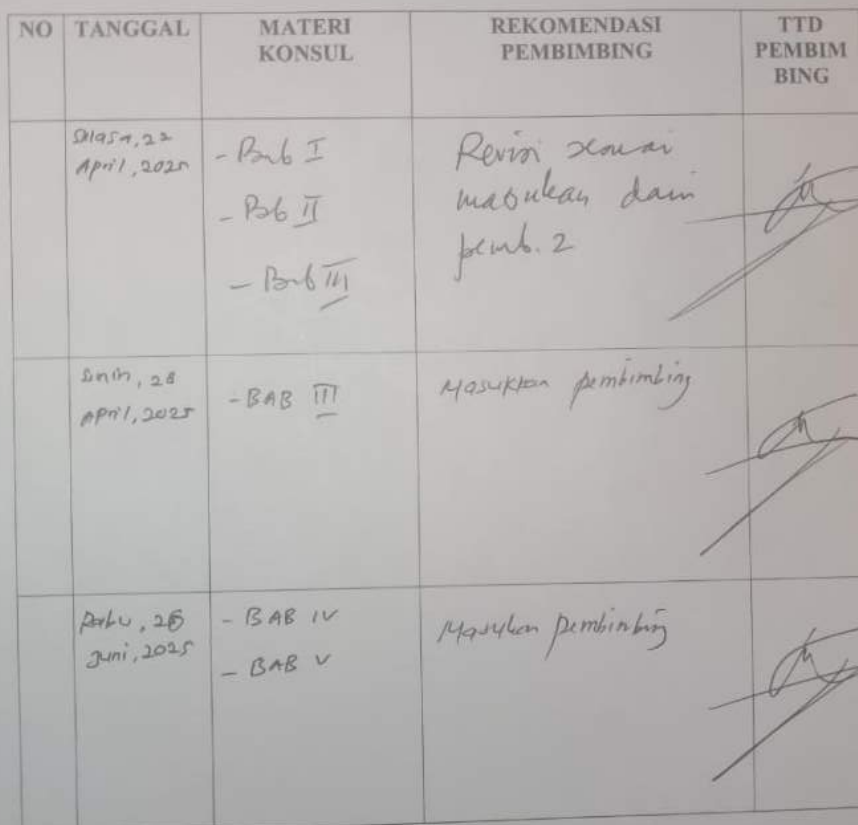 NO TANGGAL MATERI KONSUL REKOMENDASI PEMBIMBING TTD PEMBIM BING
Selasa, 22
April, 2025
- Bab I
- Bab II
- Bab III
Revisi sesuai
masukan dari
pemb. 2
Senin, 28
April, 2025
- BAB III
Masukkan pembimbing
Rabu, 
Juni, 2025
- BAB IV
- BAB V
Masukan pembimbing